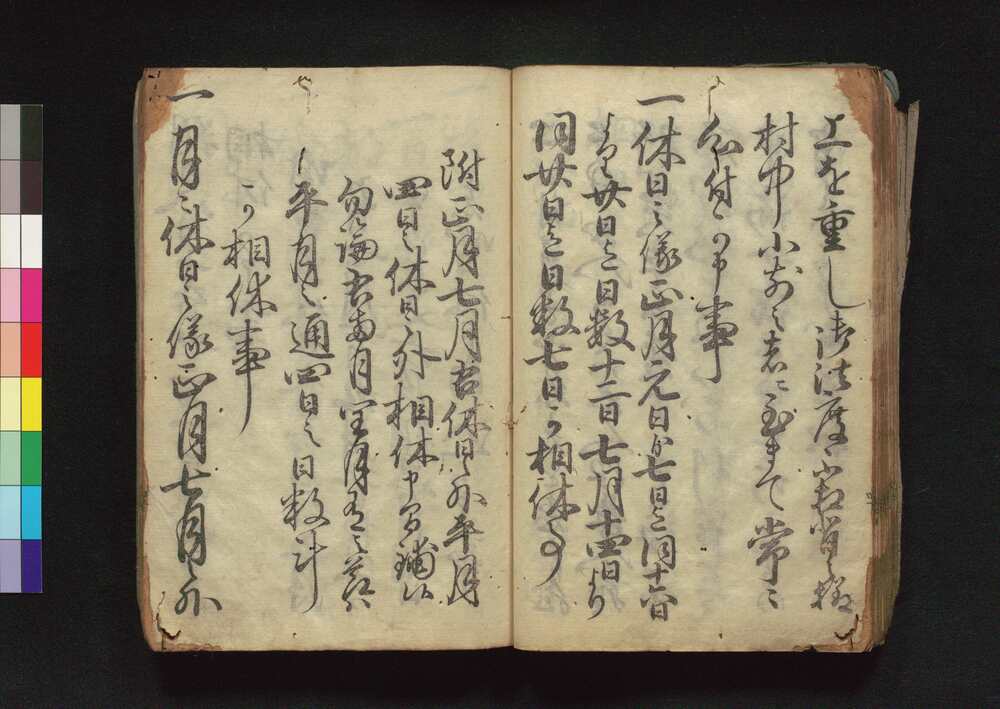 上を重し御法度不相背様
村中小前之者ニ至迄て常ニ
可申付事
一休日之儀正月元日より七日迄同十六日
より廿日迄日数十二日七月十四日より
同廿日迄日数七日可相休事
附正月七月右休日之外平月
四日之休日外相休申間鋪候
勿論右両月閏月有之節ハ
平月之通四日之日数計
可相休事
一月々休日之儀正月七月之外